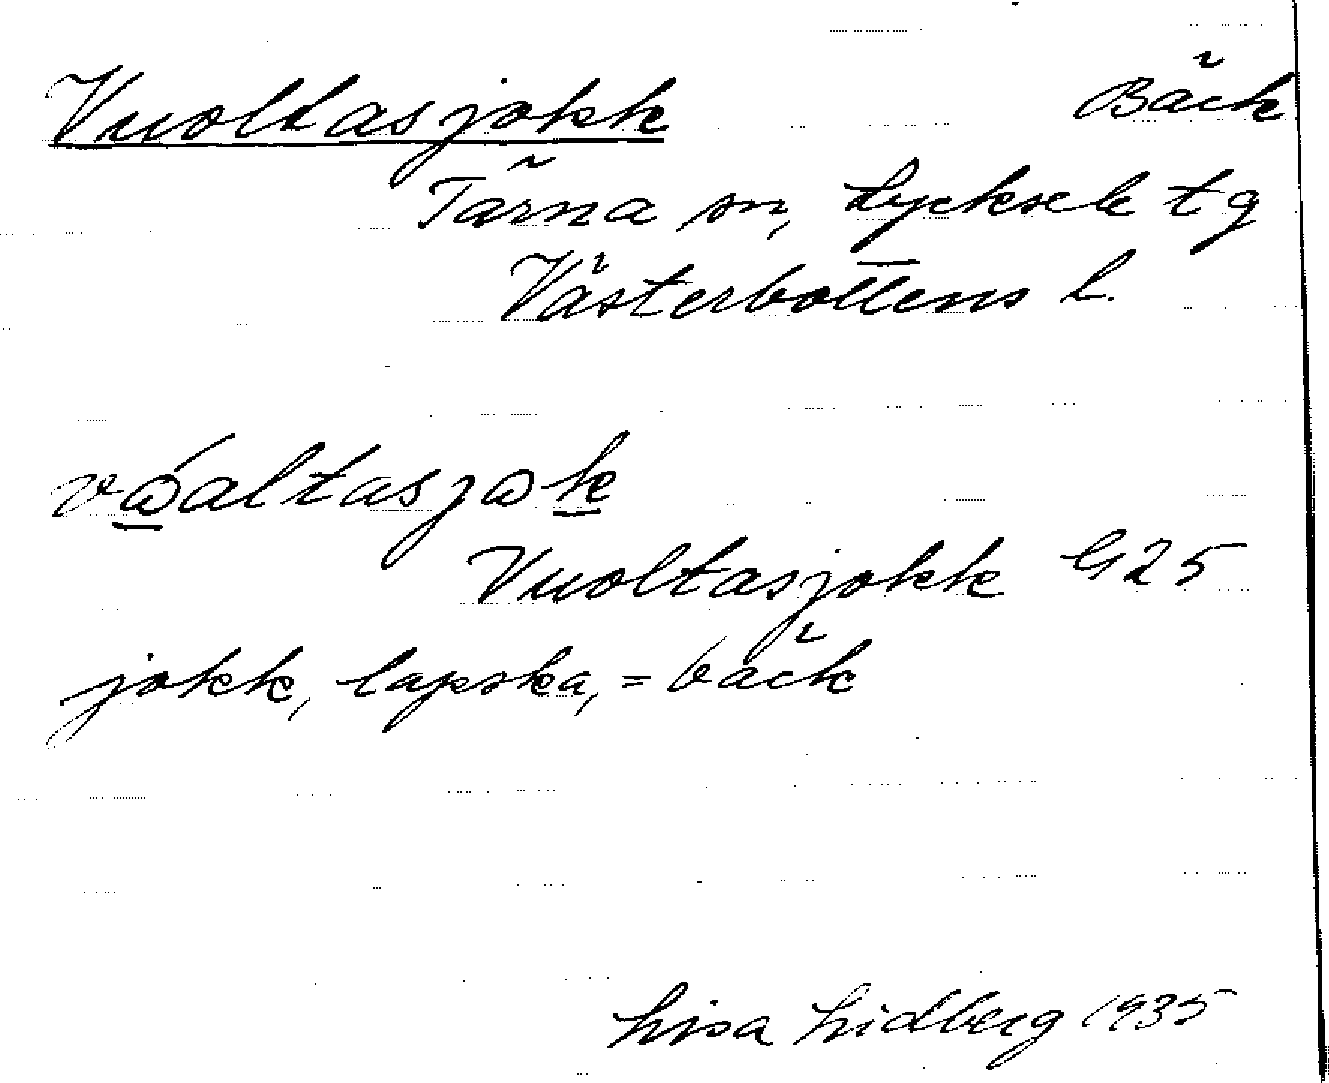 Vuoltasjokk Bäck
Tärna sn, Lycksele tg
Västerbottens L.
vώ̲altasjωk̲
Vuoltasjokk G25
jokk, lapska, = bäck
Lisa Lidberg 1935